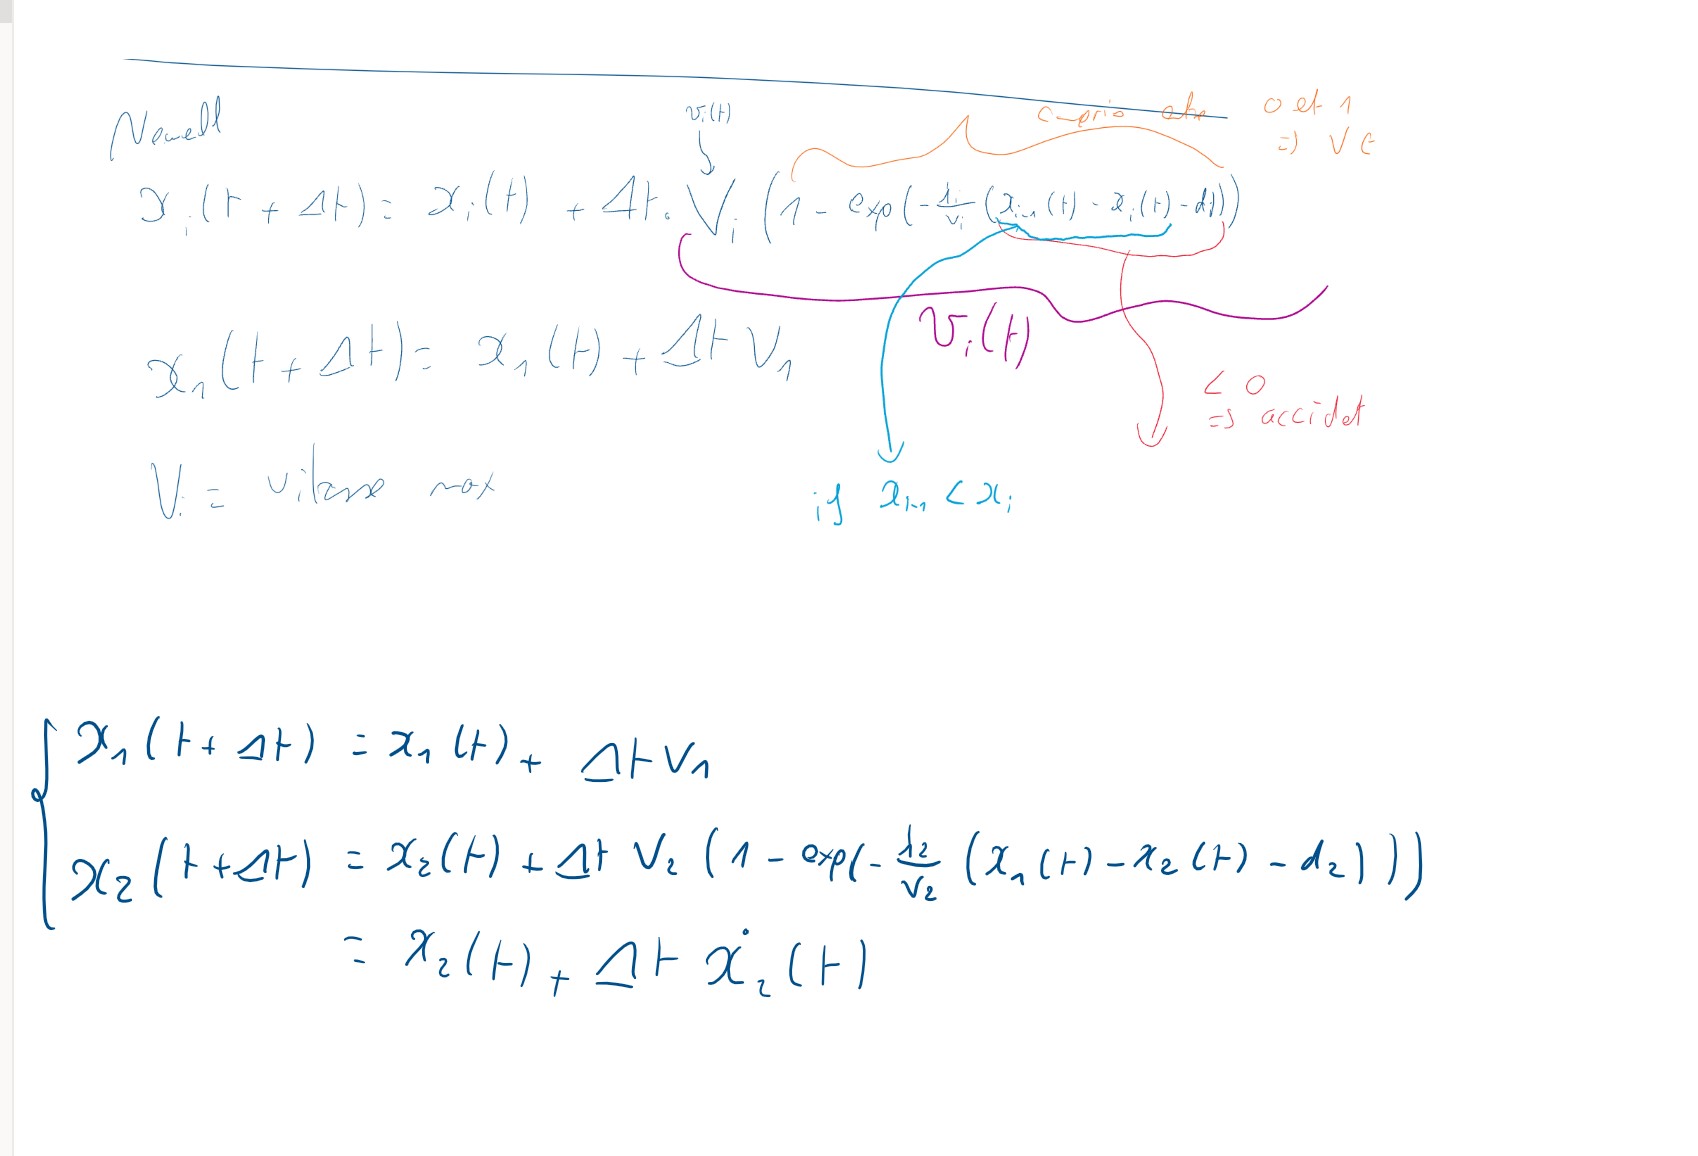 Newell
v_i(t)
comprio entre 0 et 1
=> V ∈
x_i(t + Δt) = x_i(t) + Δt. V_i (1 - exp(-λ_i/V_i (x_{i-1}(t) - x_i(t) - d_i)))
v_i(t)
x_1(t + Δt) = x_1(t) + Δt V_1
< 0
=> accidet
V_i = vitesse max
if x_{i-1} < x_i
x_1(t + Δt) = x_1(t) + Δt V_1
x_2(t + Δt) = x_2(t) + Δt V_2 (1 - exp(-λ_2/V_2 (x_1(t) - x_2(t) - d_2)))
= x_2(t) + Δt ẋ_2(t)